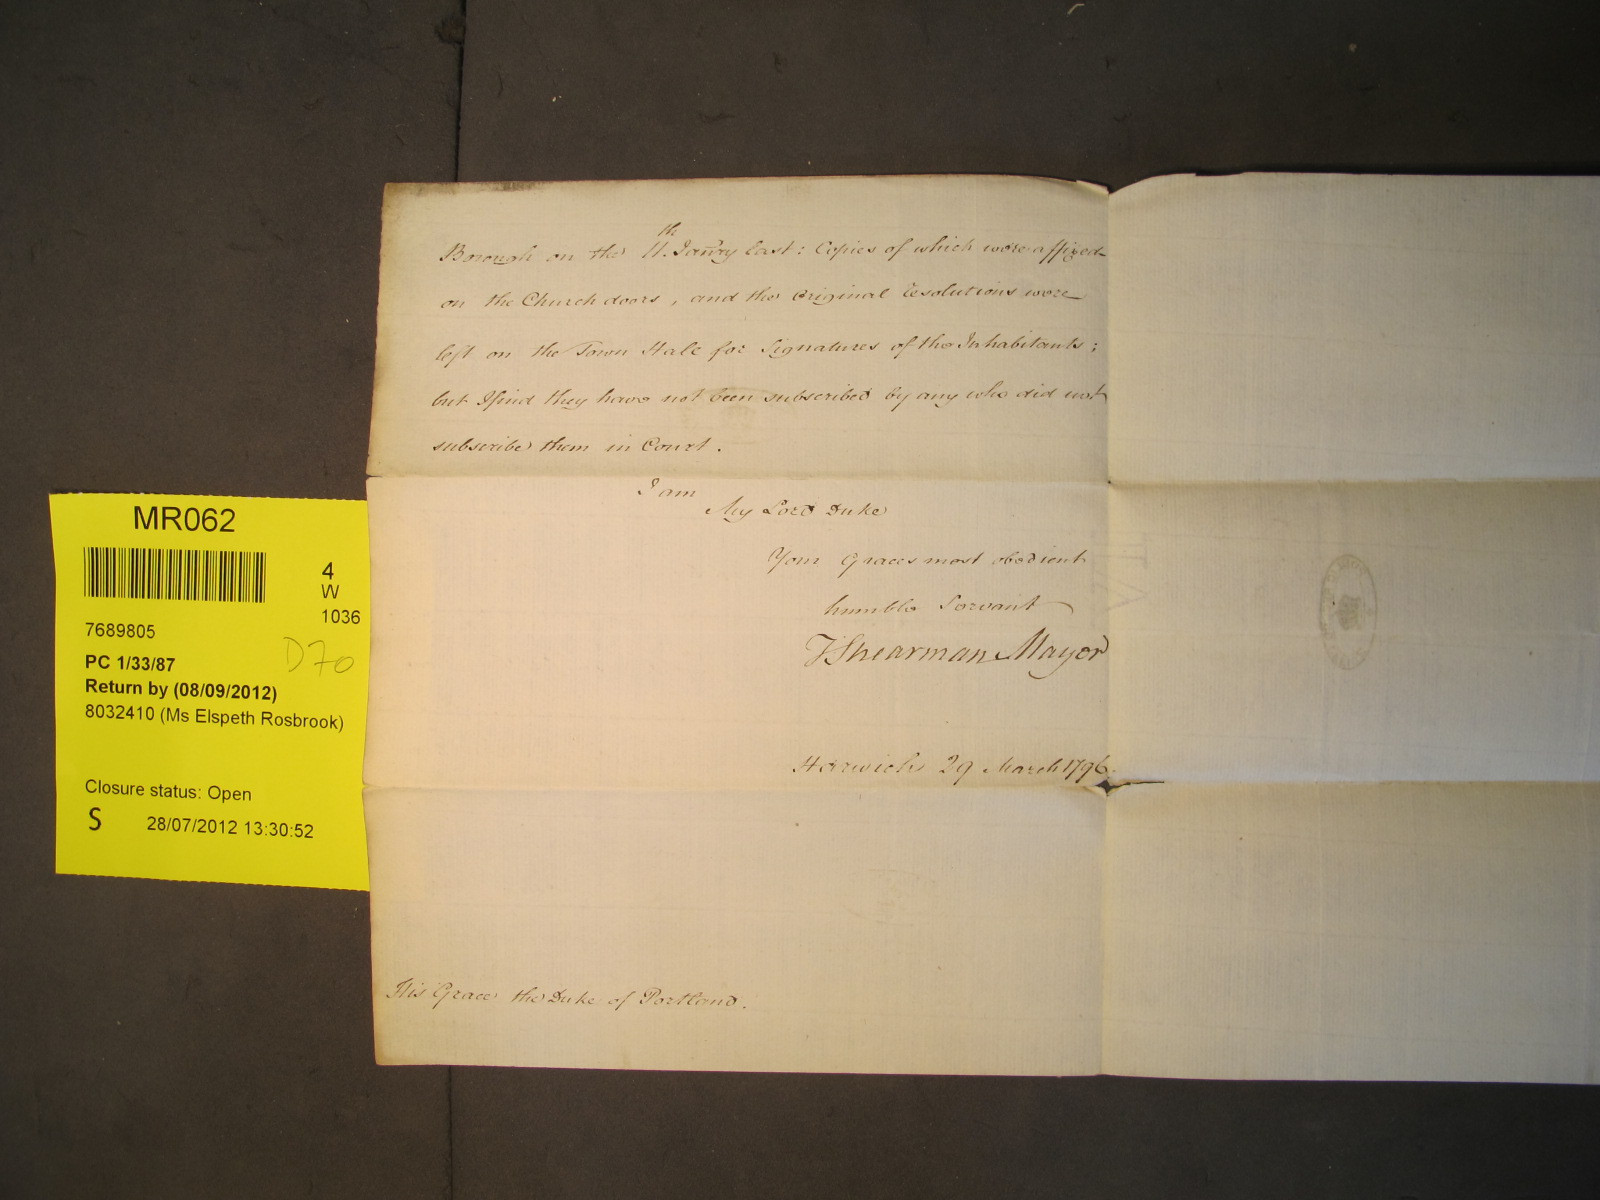 Borough on the 11.th Janry last: Copies of which were affixed
on the Church doors, and the original resolutions were
left on the Town Hall for Signatures of the Inhabitants;
but I find they have not been subscribed by any who did not
subscribe them in Court.
I am
My Lord Duke
Your Graces most obedient
humble Servant
Shearman Mayor
Harwich 29 March 1796.
His Grace the Duke of Portland.
MR062
4
W
1036
7689805
D70
PC 1/33/87
Return by (08/09/2012)
8032410 (Ms Elspeth Rosbrook)
Closure status: Open
S 28/07/2012 13:30:52